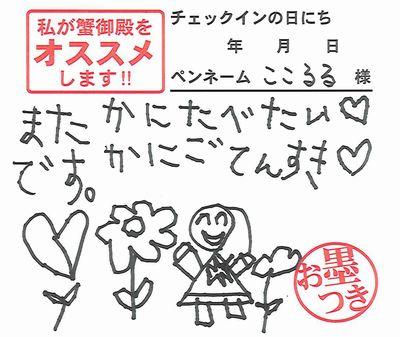 私が蟹御殿を
オススメ
します!!
チェックインの日にち
年 月 日
ペンネーム ここるる 様
また かにたべたい♡
です。 かにごてんすき♡
お墨つき